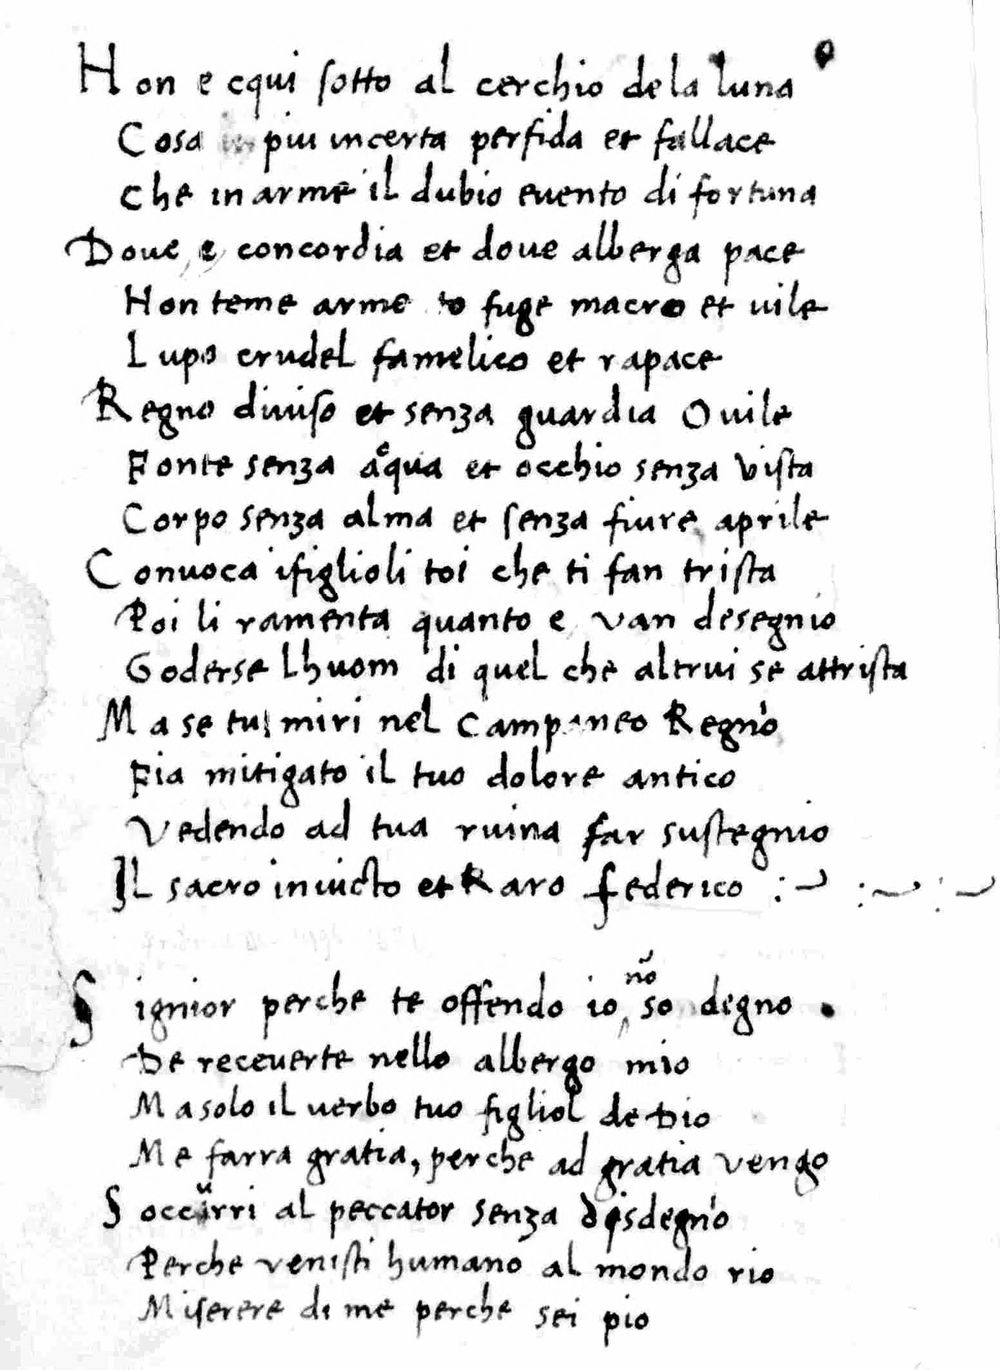 Non e cqui sotto al cerchio de la luna
Cosa piu incerta perfida et fallace
Che in arme il dubio euento di fortuna
Doue e concordia et doue alberga pace
Non teme arme to fuge macro et uile
Lupo crudel famelico et rapace
Regno diuiso et senza guardia Ouile
Fonte senza acqua et occhio senza vista
Corpo senza alma et senza fiure aprile
Conuoca i figlioli toi che ti fan trista
Poi li ramenta quanto e van desegnio
Goderse lhuom di quel che altrui se attrista
Ma se tu miri nel Campaneo Regno
Fia mitigato il tuo dolore antico
Vedendo ad tua ruina far sustegnio
Il sacro inuicto et Raro federico :~ :~ :~
Signior perche te offendo io nõ so degno
De receuerte nello albergo mio
Ma solo il uerbo tuo figliol de Dio
Me farra gratia, perche ad gratia vengo
Soccurri al peccator senza disdegno
Perche venisti humano al mondo rio
Miserere di me perche sei pio